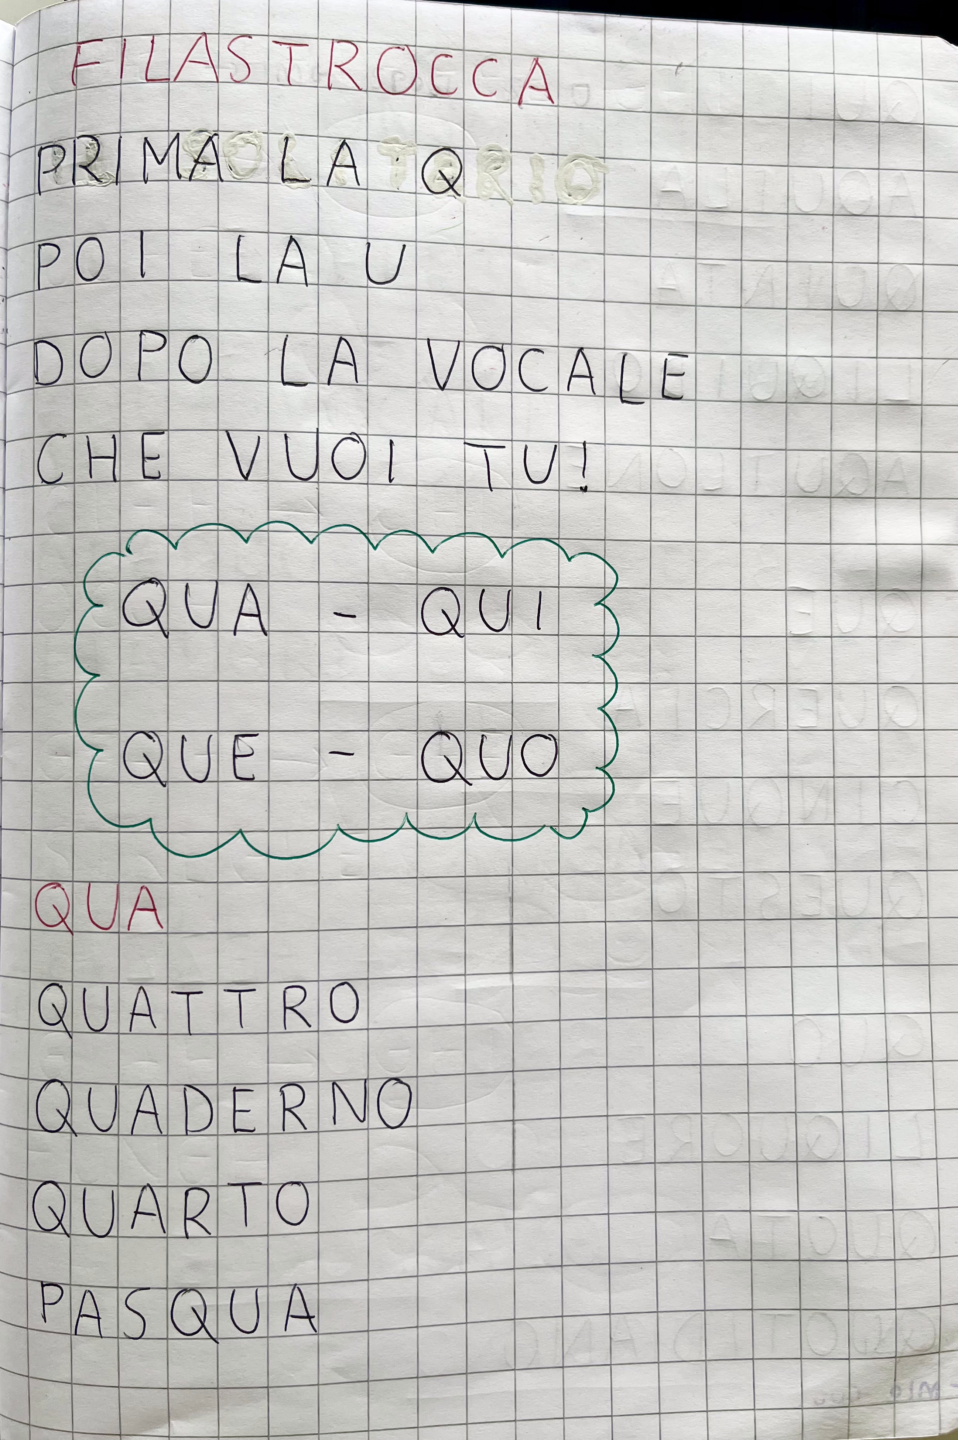 FILASTROCCA
PRIMA LA Q
POI LA U
DOPO LA VOCALE
CHE VUOI TU!
QUA - QUI
QUE - QUO
QUA
QUATTRO
QUADERNO
QUARTO
PASQUA